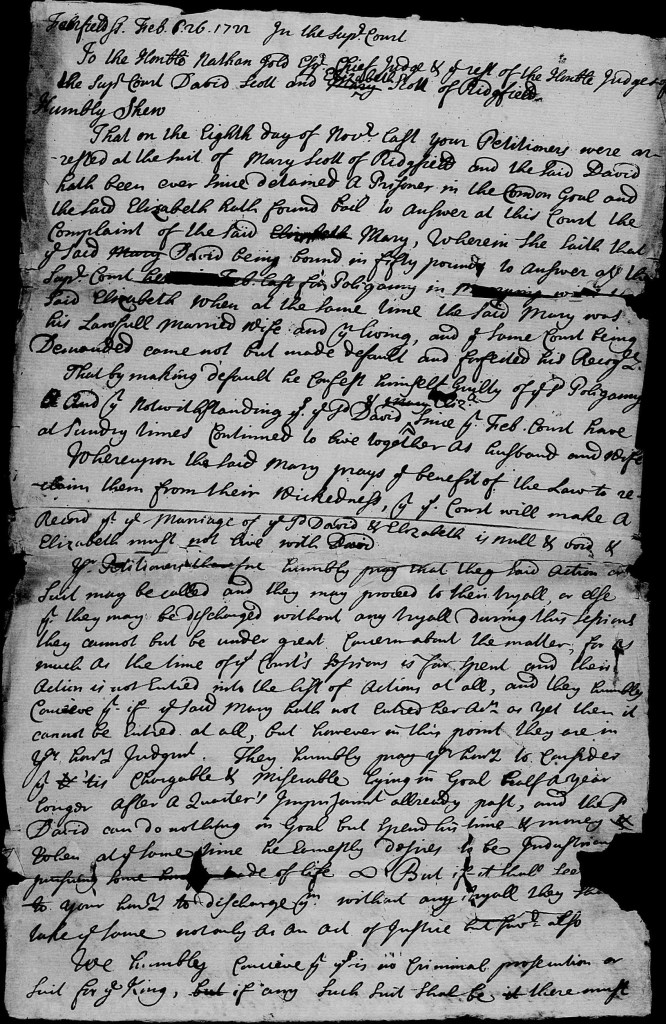 Fairfield ss. Feb. 6. 26. 1722 In the Supr. Court
To the Honble Nathan Gold Esqr. Chief Judge & ye rest of the Honble Judges of
the Supr. Court David Scott and Elizabeth Scott of Ridgfield
Humbly Shew
That on the Eighth day of Novr. last your Petitioners were ar-
rested at the suit of Mary Scott of Ridgfield and the said David
hath been ever since detained A Prisoner in the Comon Goal and
the said Elizabeth hath found bail to answer at this Court the
Complaint of the said Elizabeth Mary, Wherein She saith that
ye said Mary David being bound in fifty pounds to answer at the
Supr. Court Feb. last for Poligamy in
Said Elizabeth when at the same time the said Mary was
his Lawfull Married Wife and yt living, and ye same Court being
Demanded came not but made default and forfeited his Recogce.
That by making default he Confest himself Guilty of ye sd Poligamy
And yt Notwithstanding ys. ye sd David & Eliz. Since ye Feb. Court have
at Sundry times Continued to live together As husband and Wife
Whereupon the said Mary prays ye benefit of the Law to re-
claim them from their Wickedness, yt ye. Court will make A
Record yt ye Marriage of ye sd David & Elizabeth is null & void &
Elizabeth must not live with David
Yr. Petitioners therefor humbly pray that they said Action or
Suit may be called and they may proceed to their tryall, or else
yt they may be discharged without any tryall during this Sessions
they cannot but be under great Concern about the matter, for as
much as the time of ye Court's Sessions is far spent and their
Action is not Entred into the list of Actions at all, and they humbly
Conceive yt if ye said Mary hath not Entred her Acn. as yet then it
cannot be Entred at all, but however in this point they are in
Yr honrs. Judgmt. They humbly pray yr honrs to Consider
yt 'tis Chargable & Miserable lying in Goal half A year
Longer After A Quarter's Imprisonmt allready past, and the sd
David can do nothing in Goal but spend his time & money &
When at ye same time he Earnestly desires to be Industrious
pursuing some trade of life But if it shall
to your honrs to discharge ym without any tryall they
take ye same not only as An Act of Justice but favr. also
We humbly Conceive yt ys is no Criminal prosecution or
Suit for ye King, but if any such suit shal be it there must